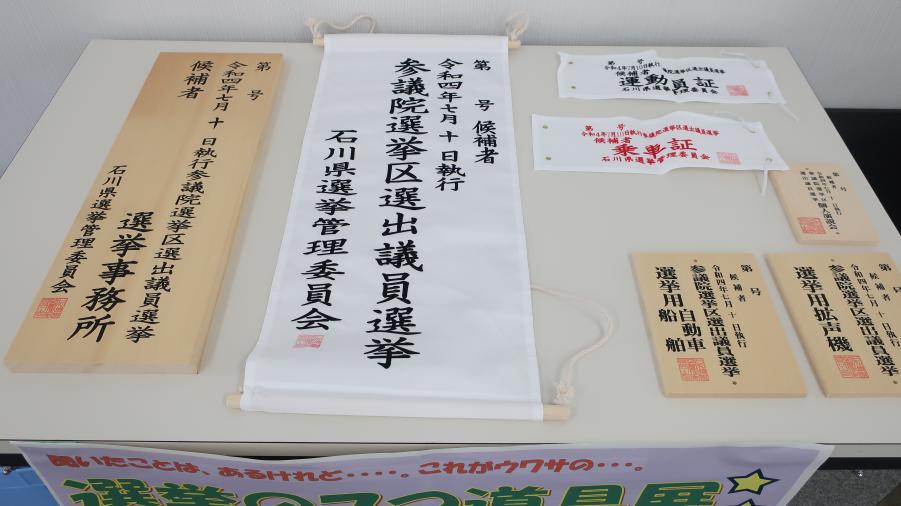 第　号
令和四年七月十　日執行参議院選挙区選出議員選挙
候補者
選挙事務所
石川県選挙管理委員会
第　号 候補者
令和四年七月十　日執行
参議院選挙区選出議員選挙
石川県選挙管理委員会
第　号
令和4年7月10日執行参議院選挙区選出議員選挙
候補者
運動員証
石川県選挙管理委員会
第　号
令和4年7月10日執行参議院選挙区選出議員選挙
候補者
乗車証
石川県選挙管理委員会
第　号
候補者
令和四年七月十　日執行
参議院選挙区
選出議員選挙
個人演説会
第　号
候補者
令和四年七月十　日執行
参議院選挙区選出議員選挙
選挙用自動車
船舶
第　号
候補者
令和四年七月十　日執行
参議院選挙区選出議員選挙
選挙用拡声機
聞いたことは、あるけれど・・・・。これがウワサの・・・。
選挙の7つ道具展